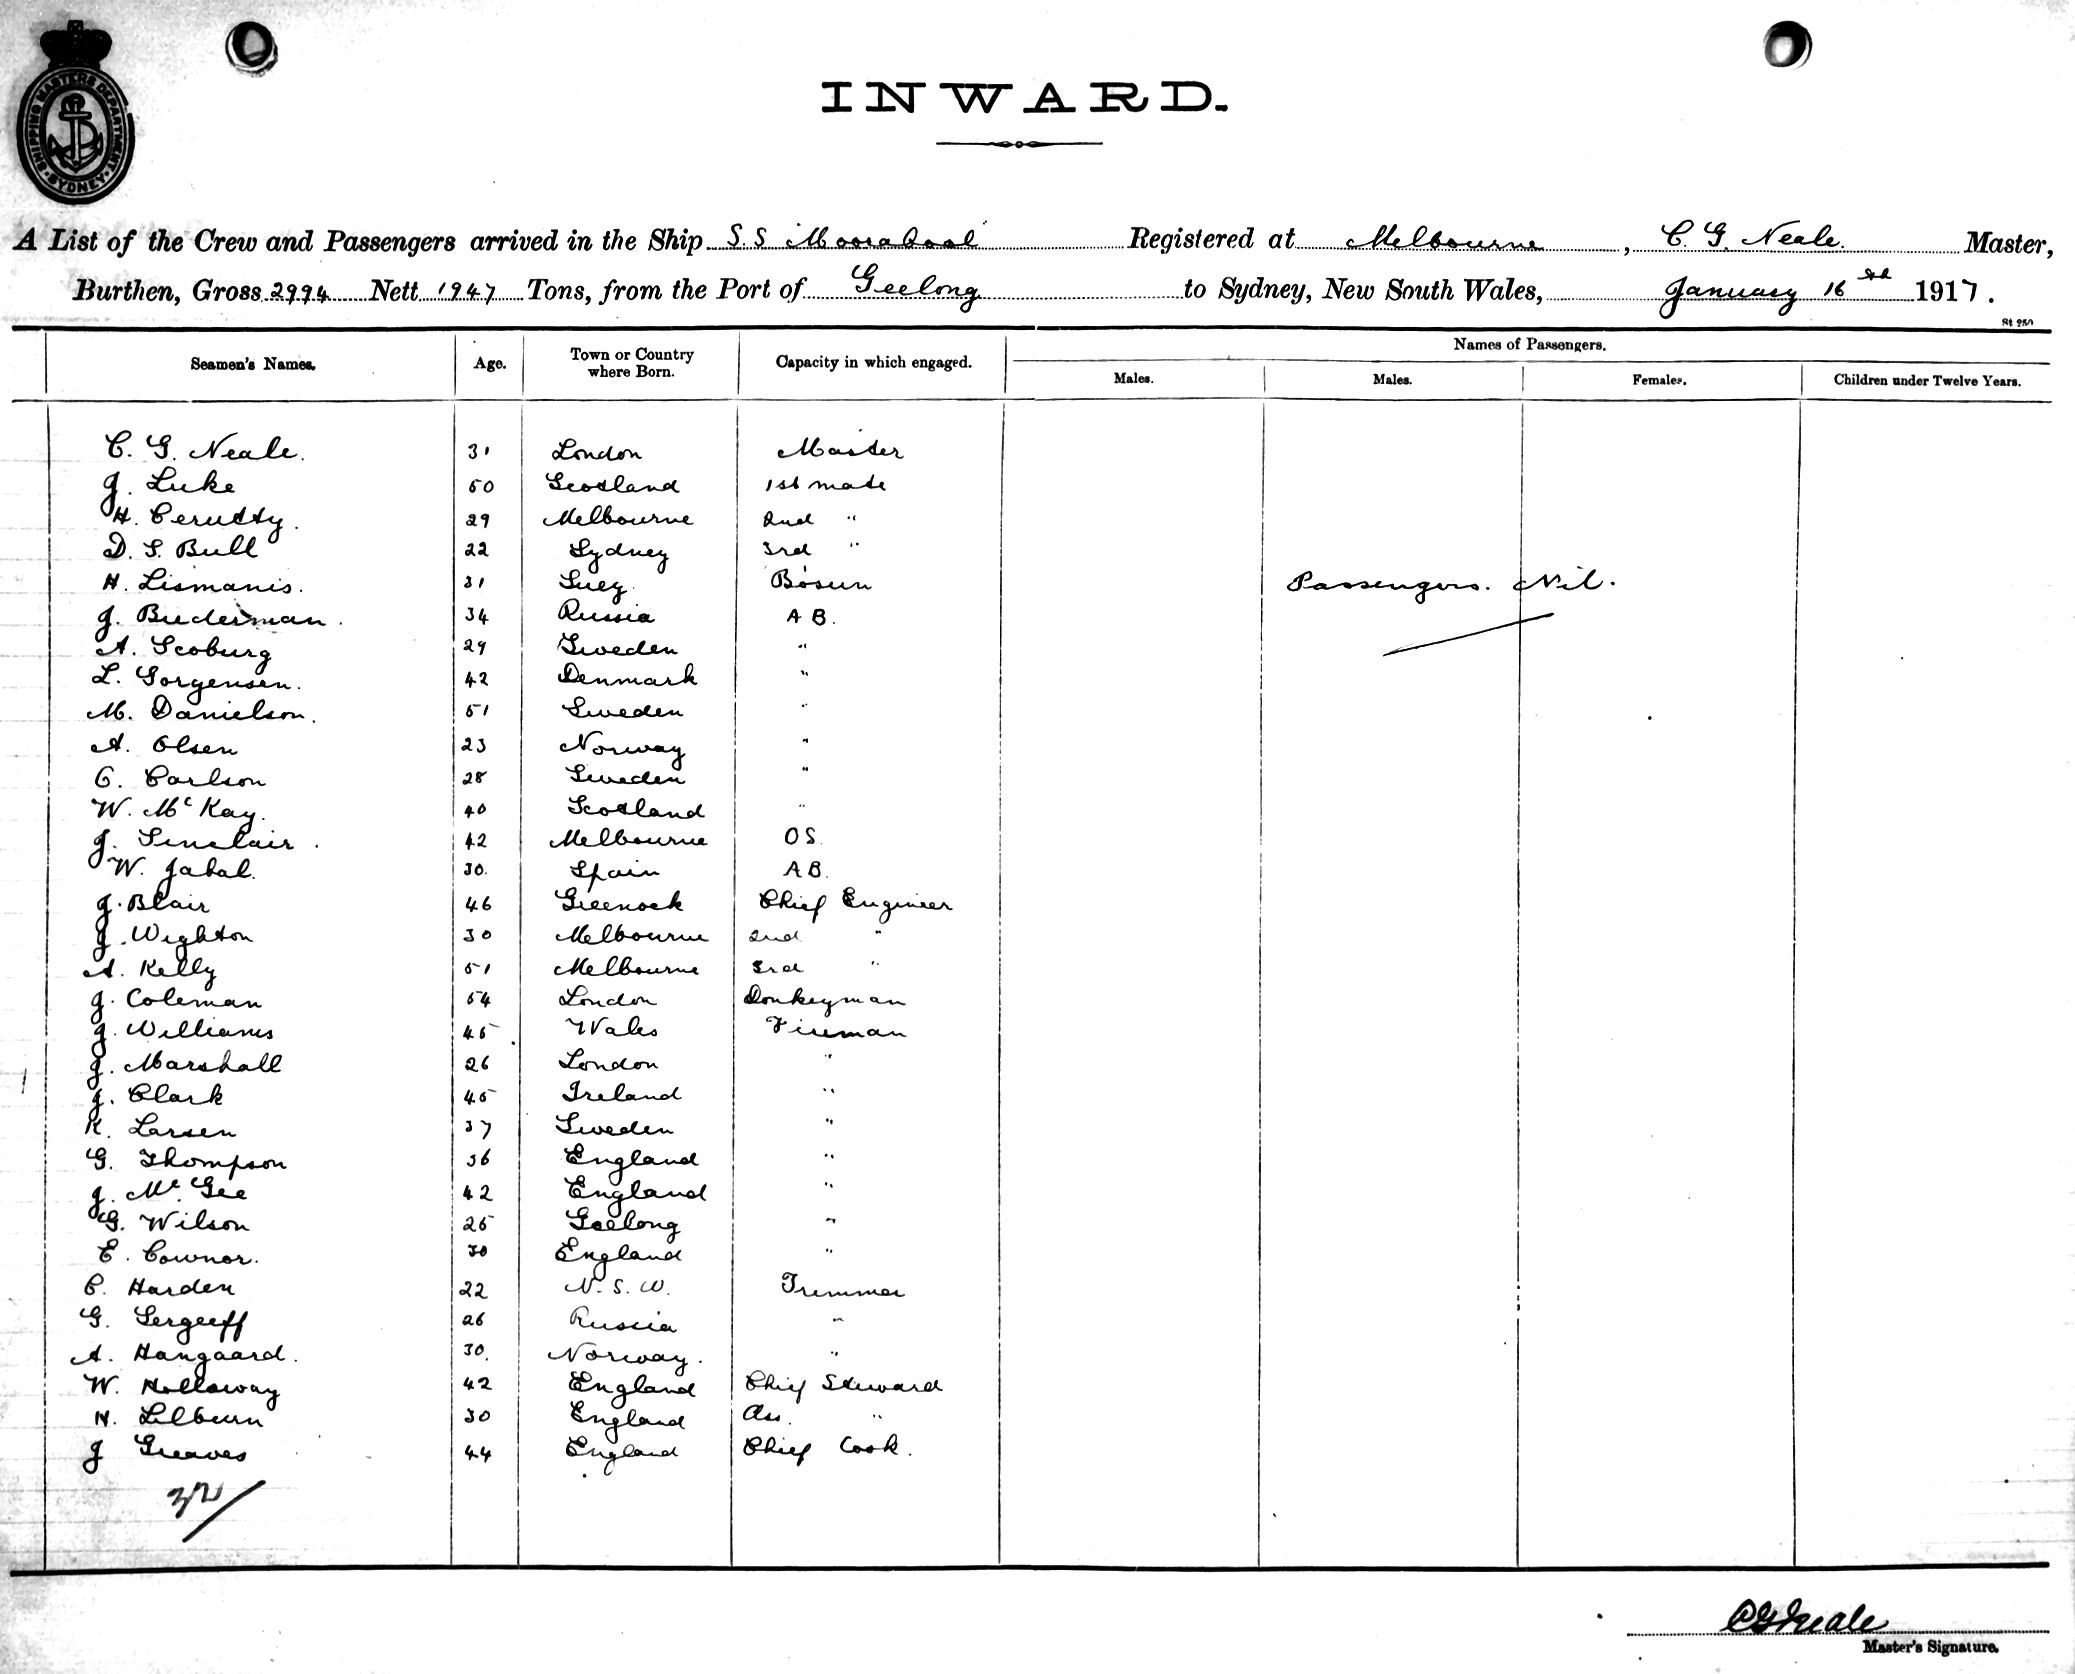 SHIPPING MASTERS DEPARTMENT
SYDNEY
INWARD.
A List of the Crew and Passengers arrived in the Ship S.S Moorabool Registered at Melbourne, C. G. Neale. Master,
Burthen, Gross 2994 Nett 1947 Tons, from the Port of Geelong to Sydney, New South Wales, January 16th 1917.
St 250
Seamen's Names. Age. Town or Country where Born. Capacity in which engaged. Names of Passengers.
Males. Males. Females. Children under Twelve Years.
C. G. Neale. 31 London Master
J. Luke 50 Scotland 1st mate
H. Cerutty. 29 Melbourne 2nd "
D. S. Bull 22 Sydney 3rd "
H. Lismanis. 31 Suez Bosun Passengers. Nil.
J. Buderman. 34 Russia A B.
A. Scoburg 29 Sweden "
L. Gorgensen. 42 Denmark "
M. Danielson. 51 Sweden "
A. Olsen 23 Norway "
C. Carlson 28 Sweden "
W. McKay. 40 Scotland "
J. Sinclair. 42 Melbourne O S.
W. Jabal. 30. Spain A B.
J. Blair 46 Greenock Chief Engineer
J. Wighton 30 Melbourne 2nd "
A. Kelly 51 Melbourne 3rd "
J. Coleman 54 London Donkeyman
J. Williams 45 Wales Fireman
J. Marshall 26 London "
J. Clark 45 Ireland "
K. Larsen 37 Sweden "
G. Thompson 36 England "
J. McGee 42 England "
G. Wilson 25 Geelong "
E. Cownor. 30 England "
C. Harden 22 N. S. W. Trimmer
G. Sergeeff 26 Russia "
A. Hangaard. 30. Norway. "
W. Holloway 42 England Chief Steward
H. Lilburn 30 England Ass. "
J Greaves 44 England Chief Cook.
32/
C G Neale
Master's Signature.